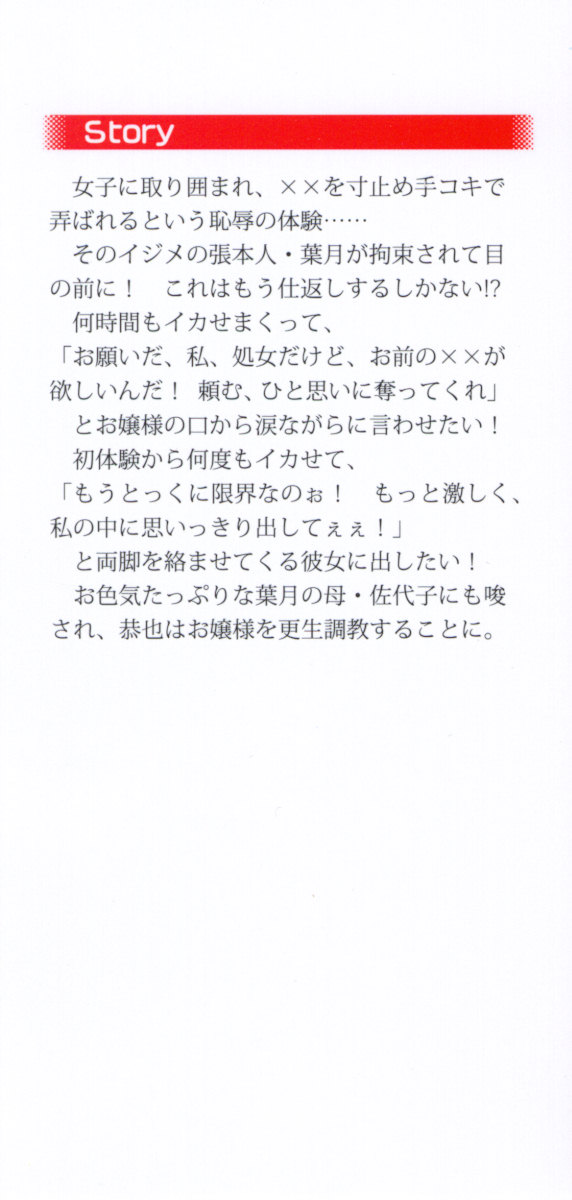 Story
女子に取り囲まれ、××を寸止め手コキで
弄ばれるという恥辱の体験……
そのイジメの張本人・葉月が拘束されて目
の前に！　これはもう仕返しするしかない!?
何時間もイカせまくって、
「お願いだ、私、処女だけど、お前の××が
欲しいんだ！ 頼む、ひと思いに奪ってくれ」
とお嬢様の口から涙ながらに言わせたい！
初体験から何度もイカせて、
「もうとっくに限界なのぉ！　もっと激しく、
私の中に思いっきり出してぇぇ！」
と両脚を絡ませてくる彼女に出したい！
お色気たっぷりな葉月の母・佐代子にも唆
され、恭也はお嬢様を更生調教することに。